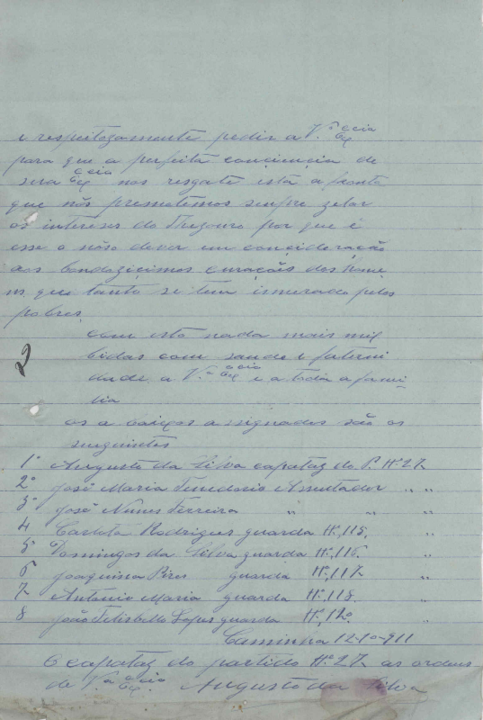 e respeitozamente pedir a V.ª Ex cia
para que a perfeita conciencia de
sua Ex cia nos resgate esta afronta
que nós premetemos sempre zelar
os interesses do Thezouro por que é
esse o nóso dever em concideração
aos bondozicimos curações dos home
ns que tanto se tem ismerado pelos
pobres
com isto nada mais mil
bidas com saude e faterni
dade a V.ª Ex cia e a toda a fami
lia
os a baiços a signados são os
seguintes
2
1º Augusto da Silva capataz do P. Nº 27
2º José Maria Assentador " "
3º José Nunes Ferreira " " "
4 Carlota Rodrigues guarda Nº, 115, "
5º Domingos da Silva guarda Nº, 116. "
6 Joaquina Pires guarda Nº, 117 "
7 Antonio Maria guarda Nº, 118. "
8 João Lopes guarda Nº,
Caminha 12-1º-911
O capataz do partido Nº 27 as ordens
de V.ª Ex cia. Augusto da Silva